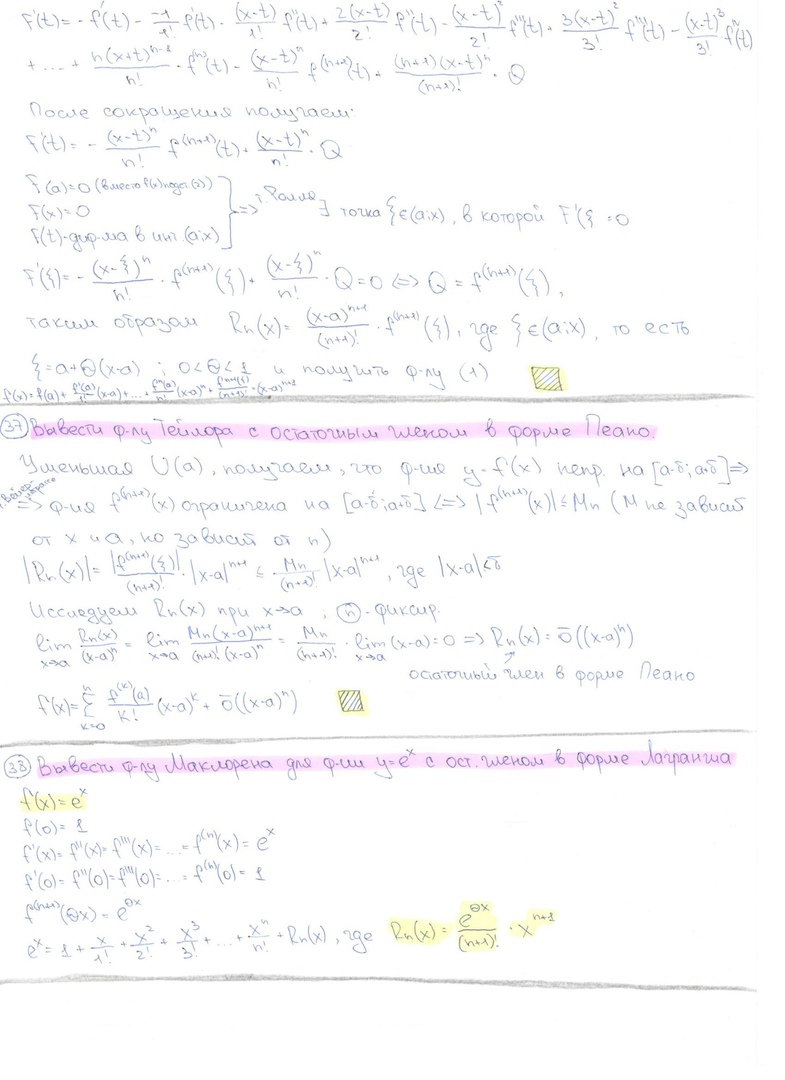 F'(t) = - f'(t) - \frac{-1}{1!} f'(t) - \frac{(x-t)}{1!} f''(t) + \frac{2(x-t)}{2!} f''(t) - \frac{(x-t)^2}{2!} f'''(t) + \frac{3(x-t)^2}{3!} f'''(t) - \frac{(x-t)^3}{3!} f^{IV}(t)
+ ... + \frac{n(x+t)^{n-1}}{n!} · f^{(n)}(t) - \frac{(x-t)^n}{n!} f^{(n+1)}(t) + \frac{(n+1)(x-t)^n}{(n+1)!} · Q
После сокращения получаем:
F'(t) = - \frac{(x-t)^n}{n!} f^{(n+1)}(t) + \frac{(x-t)^n}{n!} · Q
F(a)=0 (вместо f(x) подст.(2))
F(x)=0
F(t)-диф-ма в инт. (a;x)
=> т. Ролля ∃ точка ξ∈(a;x), в которой F'(ξ = 0
F'(ξ) = - \frac{(x-ξ)^n}{n!} · f^{(n+1)}(ξ) + \frac{(x-ξ)^n}{n!} · Q = 0 <=> Q = f^{(n+1)}(ξ),
таким образом Rn(x) = \frac{(x-a)^{n+1}}{(n+1)!} · f^{(n+1)}(ξ), где ξ∈(a;x), то есть
ξ = a+Θ(x-a) ; 0<Θ<1 и получить ф-лу (1)
f(x) = f(a) + \frac{f'(a)}{1!}(x-a) + ... + \frac{f^n(a)}{n!}(x-a)^n + \frac{f^{n+1}(ξ)}{(n+1)!}·(x-a)^{n+1}
37 Вывести ф-лу Тейлора с остаточным членом в форме Пеано.
Уменьшая U(a), получаем, что ф-ия y=f(x) непр. на [a-δ; a+δ] =>
=> ф-ия f^{(n+1)}(x) ограничена на [a-δ; a+δ] <=> |f^{(n+1)}(x)| ≤ Mn (M не зависит
от x и a, но зависит от n)
|Rn(x)| = \frac{|f^{(n+1)}(ξ)|}{(n+1)!} · |x-a|^{n+1} ≤ \frac{Mn}{(n+1)!} |x-a|^{n+1}, где |x-a|<δ
Исследуем Rn(x) при x→a ; n -фиксир.
\lim_{x→a} \frac{Rn(x)}{(x-a)^n} = \lim_{x→a} \frac{Mn(x-a)^{n+1}}{(n+1)!(x-a)^n} = \frac{Mn}{(n+1)!} · \lim_{x→a} (x-a) = 0 => Rn(x) = ō((x-a)^n)
остаточный член в форме Пеано
f(x) = \sum_{k=0}^{n} \frac{f^{(k)}(a)}{k!} (x-a)^k + ō((x-a)^n)
38 Вывести ф-лу Маклорена для ф-ии y=e^x с ост. членом в форме Лагранжа
f(x) = e^x
f(0) = 1
f'(x) = f''(x) = f'''(x) = ... = f^{(n)}(x) = e^x
f'(0) = f''(0) = f'''(0) = ... = f^{(n)}(0) = 1
f^{(n+1)}(Θx) = e^{Θx}
e^x = 1 + \frac{x}{1!} + \frac{x^2}{2!} + \frac{x^3}{3!} + ... + \frac{x^n}{n!} + Rn(x), где Rn(x) = \frac{e^{Θx}}{(n+1)!} · x^{n+1}